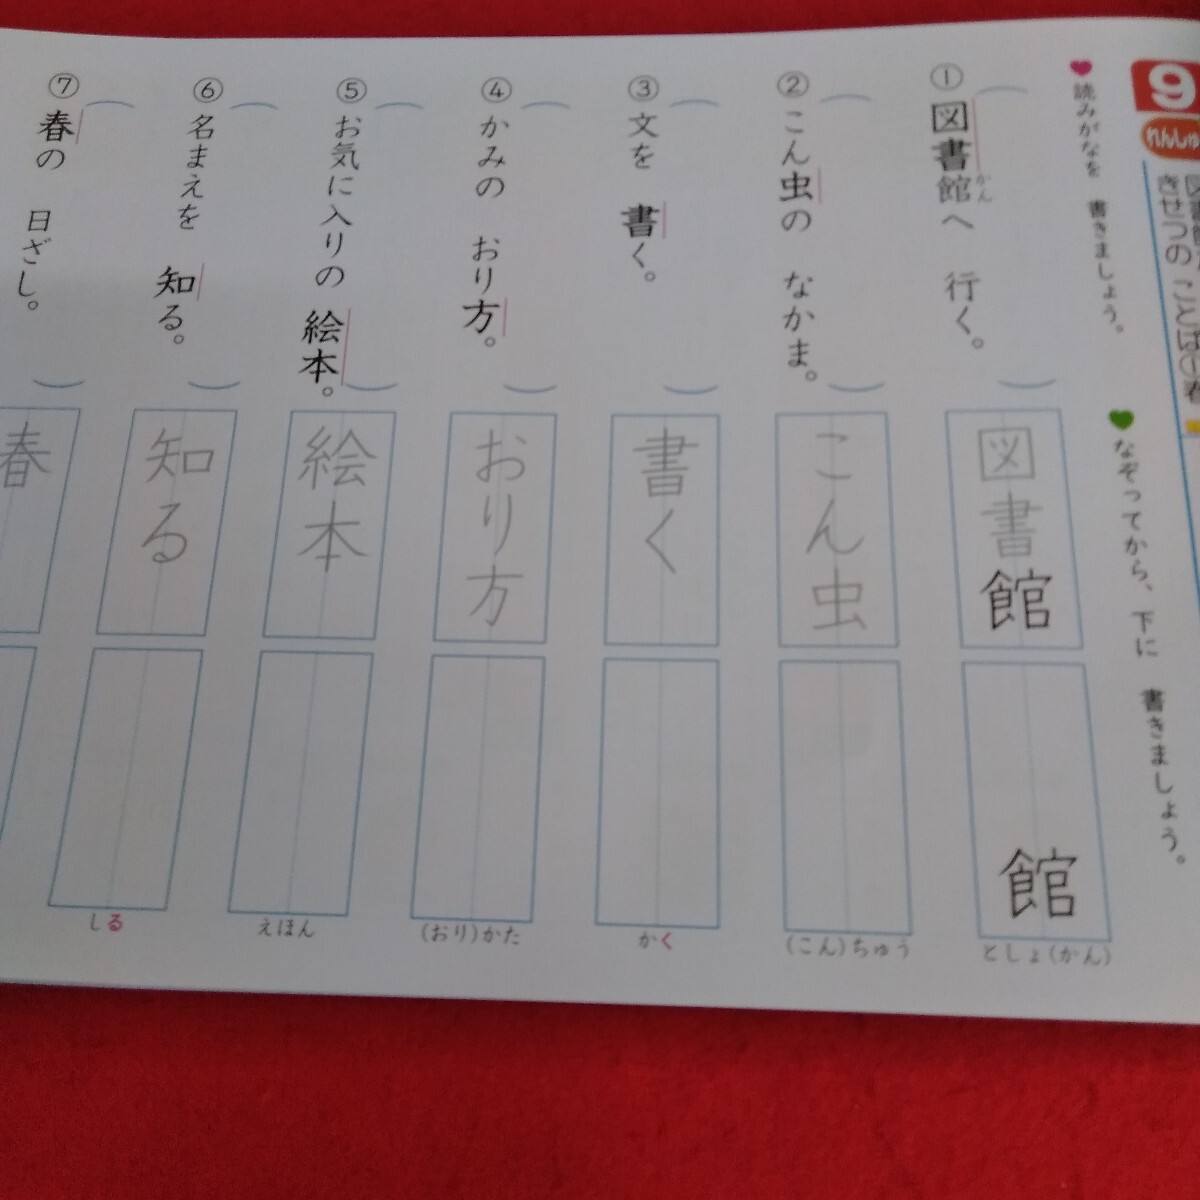 9
れんしゅ
きせつの ことば① 春
読みがなを 書きましょう。
なぞってから、下に 書きましょう。
① 図書館へ 行く。
かん
② こん虫の なかま。
③ 文を 書く。
④ かみの おり方。
⑤ お気に入りの 絵本。
⑥ 名まえを 知る。
⑦ 春の 日ざし。
図書館
こん虫
書く
おり方
絵本
知る
春
館
としょ(かん)
(こん)ちゅう
かく
(おり)かた
えほん
しる